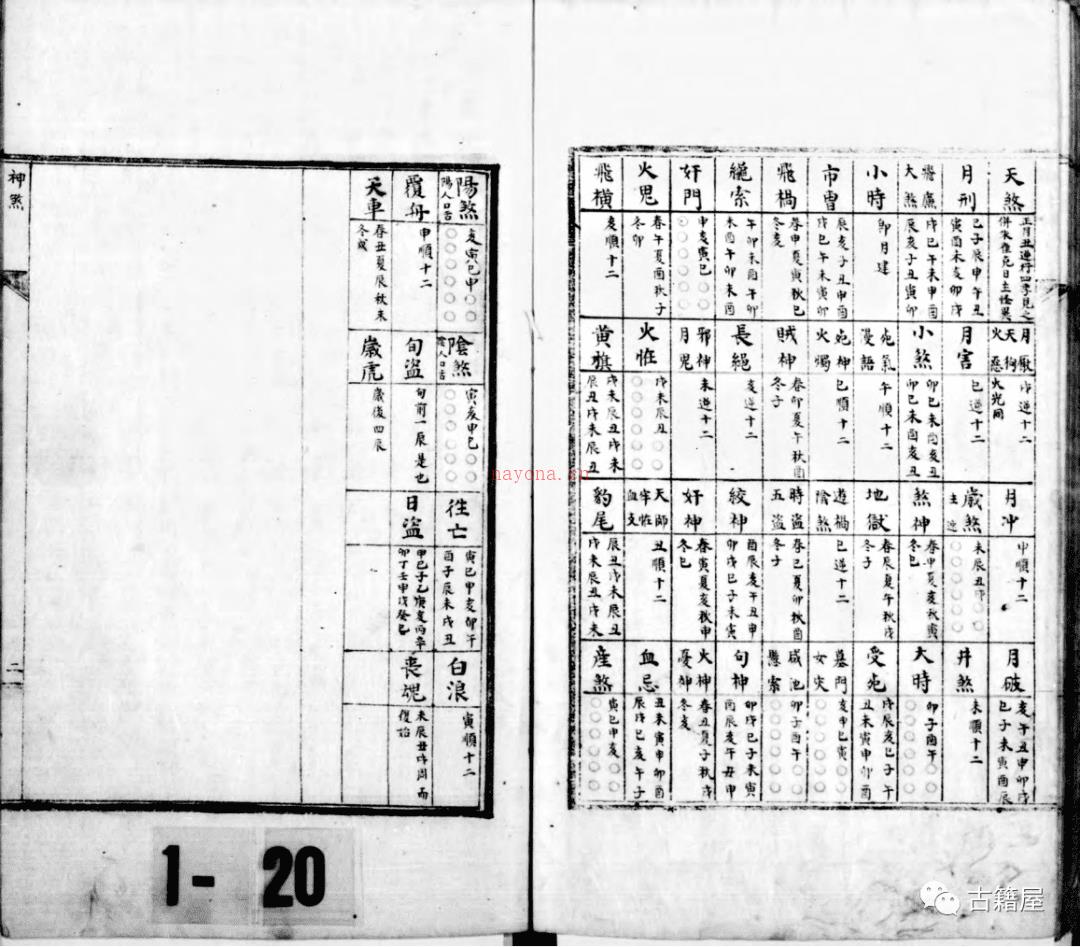 天煞
正月丑逆行四季見之
併歲惟克日主怪異
月厭
天狗
火惡
戌逆十二
火光同
月冲
申順十二
月破
亥午丑申卯戌
巳子未寅酉辰
月刑
巳子辰申午丑
寅酉未亥卯戌
月害
巳逆十二
歲煞
未辰丑戌
井煞
未順十二
飛廉
大煞
戌巳午未申酉
辰亥子丑寅卯
小煞
卯巳未酉亥丑
卯巳未酉亥丑
煞神
春申夏亥秋寅
冬巳
大時
卯子酉午
小時
卯月建
死氣
謾語
午順十二
地獄
春辰夏午秋戌
冬子
受死
戌辰亥巳子午
丑未寅申卯酉
市曹
辰亥子丑申酉
戌巳午未寅卯
死神
火燭
巳順十二
遊禍
陰煞
巳逆十二
墓門
女灾
亥申巳寅
飛禍
春申夏寅秋巳
冬亥
賊神
春卯夏午秋酉
冬子
時盜
五盜
春巳夏卯秋酉
冬子
咸池
懸索
卯子酉午
繩索
午卯未酉午卯
未酉午卯未酉
長繩
亥逆十二
絞神
酉辰亥午丑申
卯戌巳子未寅
勾神
卯戌巳子未寅
酉辰亥午丑申
奸門
申亥寅巳
邪神
月鬼
未逆十二
奸神
春寅夏亥秋申
冬巳
火神
憂神
春丑夏子秋戌
冬亥
火鬼
春午夏酉秋子
冬卯
火怪
戌未辰丑
天師
牢怪
血支
丑順十二
血忌
丑未寅申卯酉
辰戌巳亥午子
飛橫
亥順十二
黄旗
戌未辰丑戌未
辰丑戌未辰丑
豹尾
辰丑戌未辰丑
戌未辰丑戌未
産煞
寅巳申亥
陽煞
陽人口舌
亥寅巳申
陰煞
陰人口舌
寅亥申巳
往亡
寅巳申亥卯午
酉子辰未戌丑
白浪
寅順十二
覆舟
申順十二
旬盜
旬前一辰是也
日盜
申巳子乙庚亥丙辛
卯丁壬申戊癸巳
喪魂
未辰丑戌周而
復始
天車
春丑夏辰秋未
冬戌
歲虎
歲後四辰
神煞
二
nayona.cn
1- 20
古籍屋